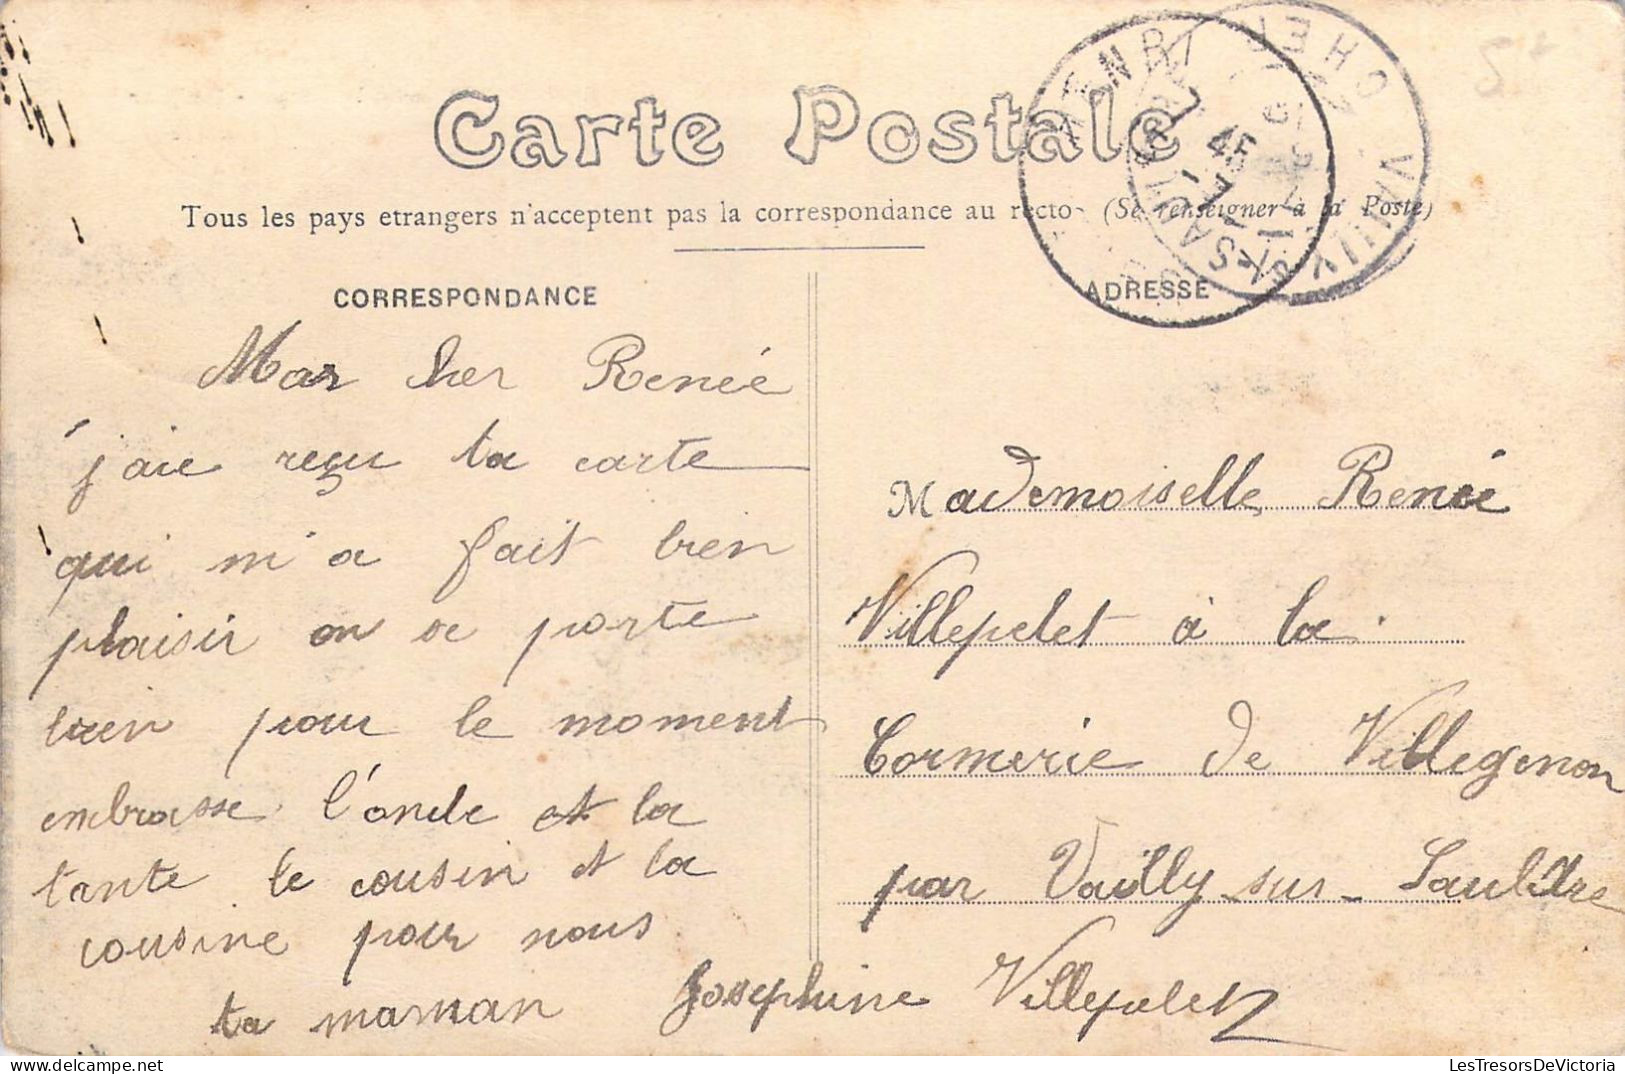 Carte Postale
Tous les pays etrangers n'acceptent pas la correspondance au recto - (Se renseigner à la Poste)
CORRESPONDANCE
ADRESSE
Mar cher Renée
j'aie reçu ta carte
qui m'a fait bien
plaisir on se porte
bien pour le moment
embrasse l'oncle et la
tante le cousin et la
cousine pour nous
ta maman Josephine Villepelet
Mademoiselle Renée
Villepelet à la
Cormerie de Villegenon
par Vailly-sur-Sauldre
VAILLY S/ SAULDRE
CHER
LesTresorsDeVictoria